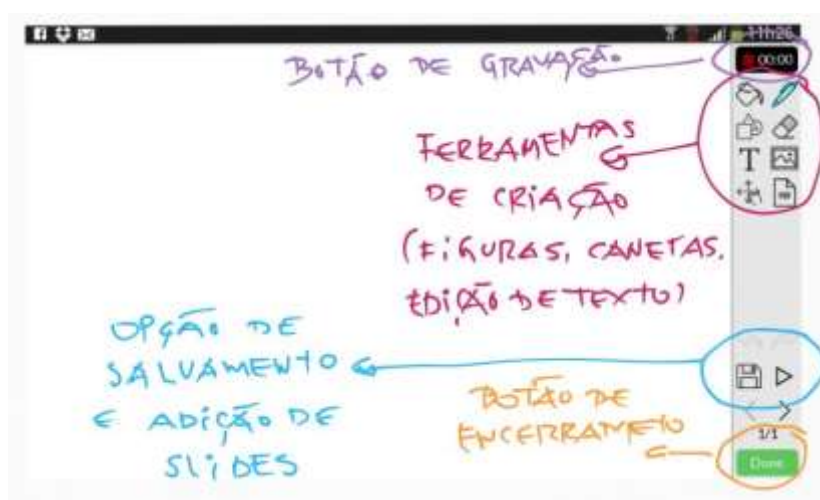 11h26
BOTÃO DE GRAVAÇÃO
00:00
FERRAMENTAS
DE CRIAÇÃO
(FIGURAS, CANETAS,
EDIÇÃO DE TEXTO)
T
OPÇÃO DE
SALVAMENTO
E ADIÇÃO DE
SLIDES
BOTÃO DE
ENCERRAMETO
1/1
Done